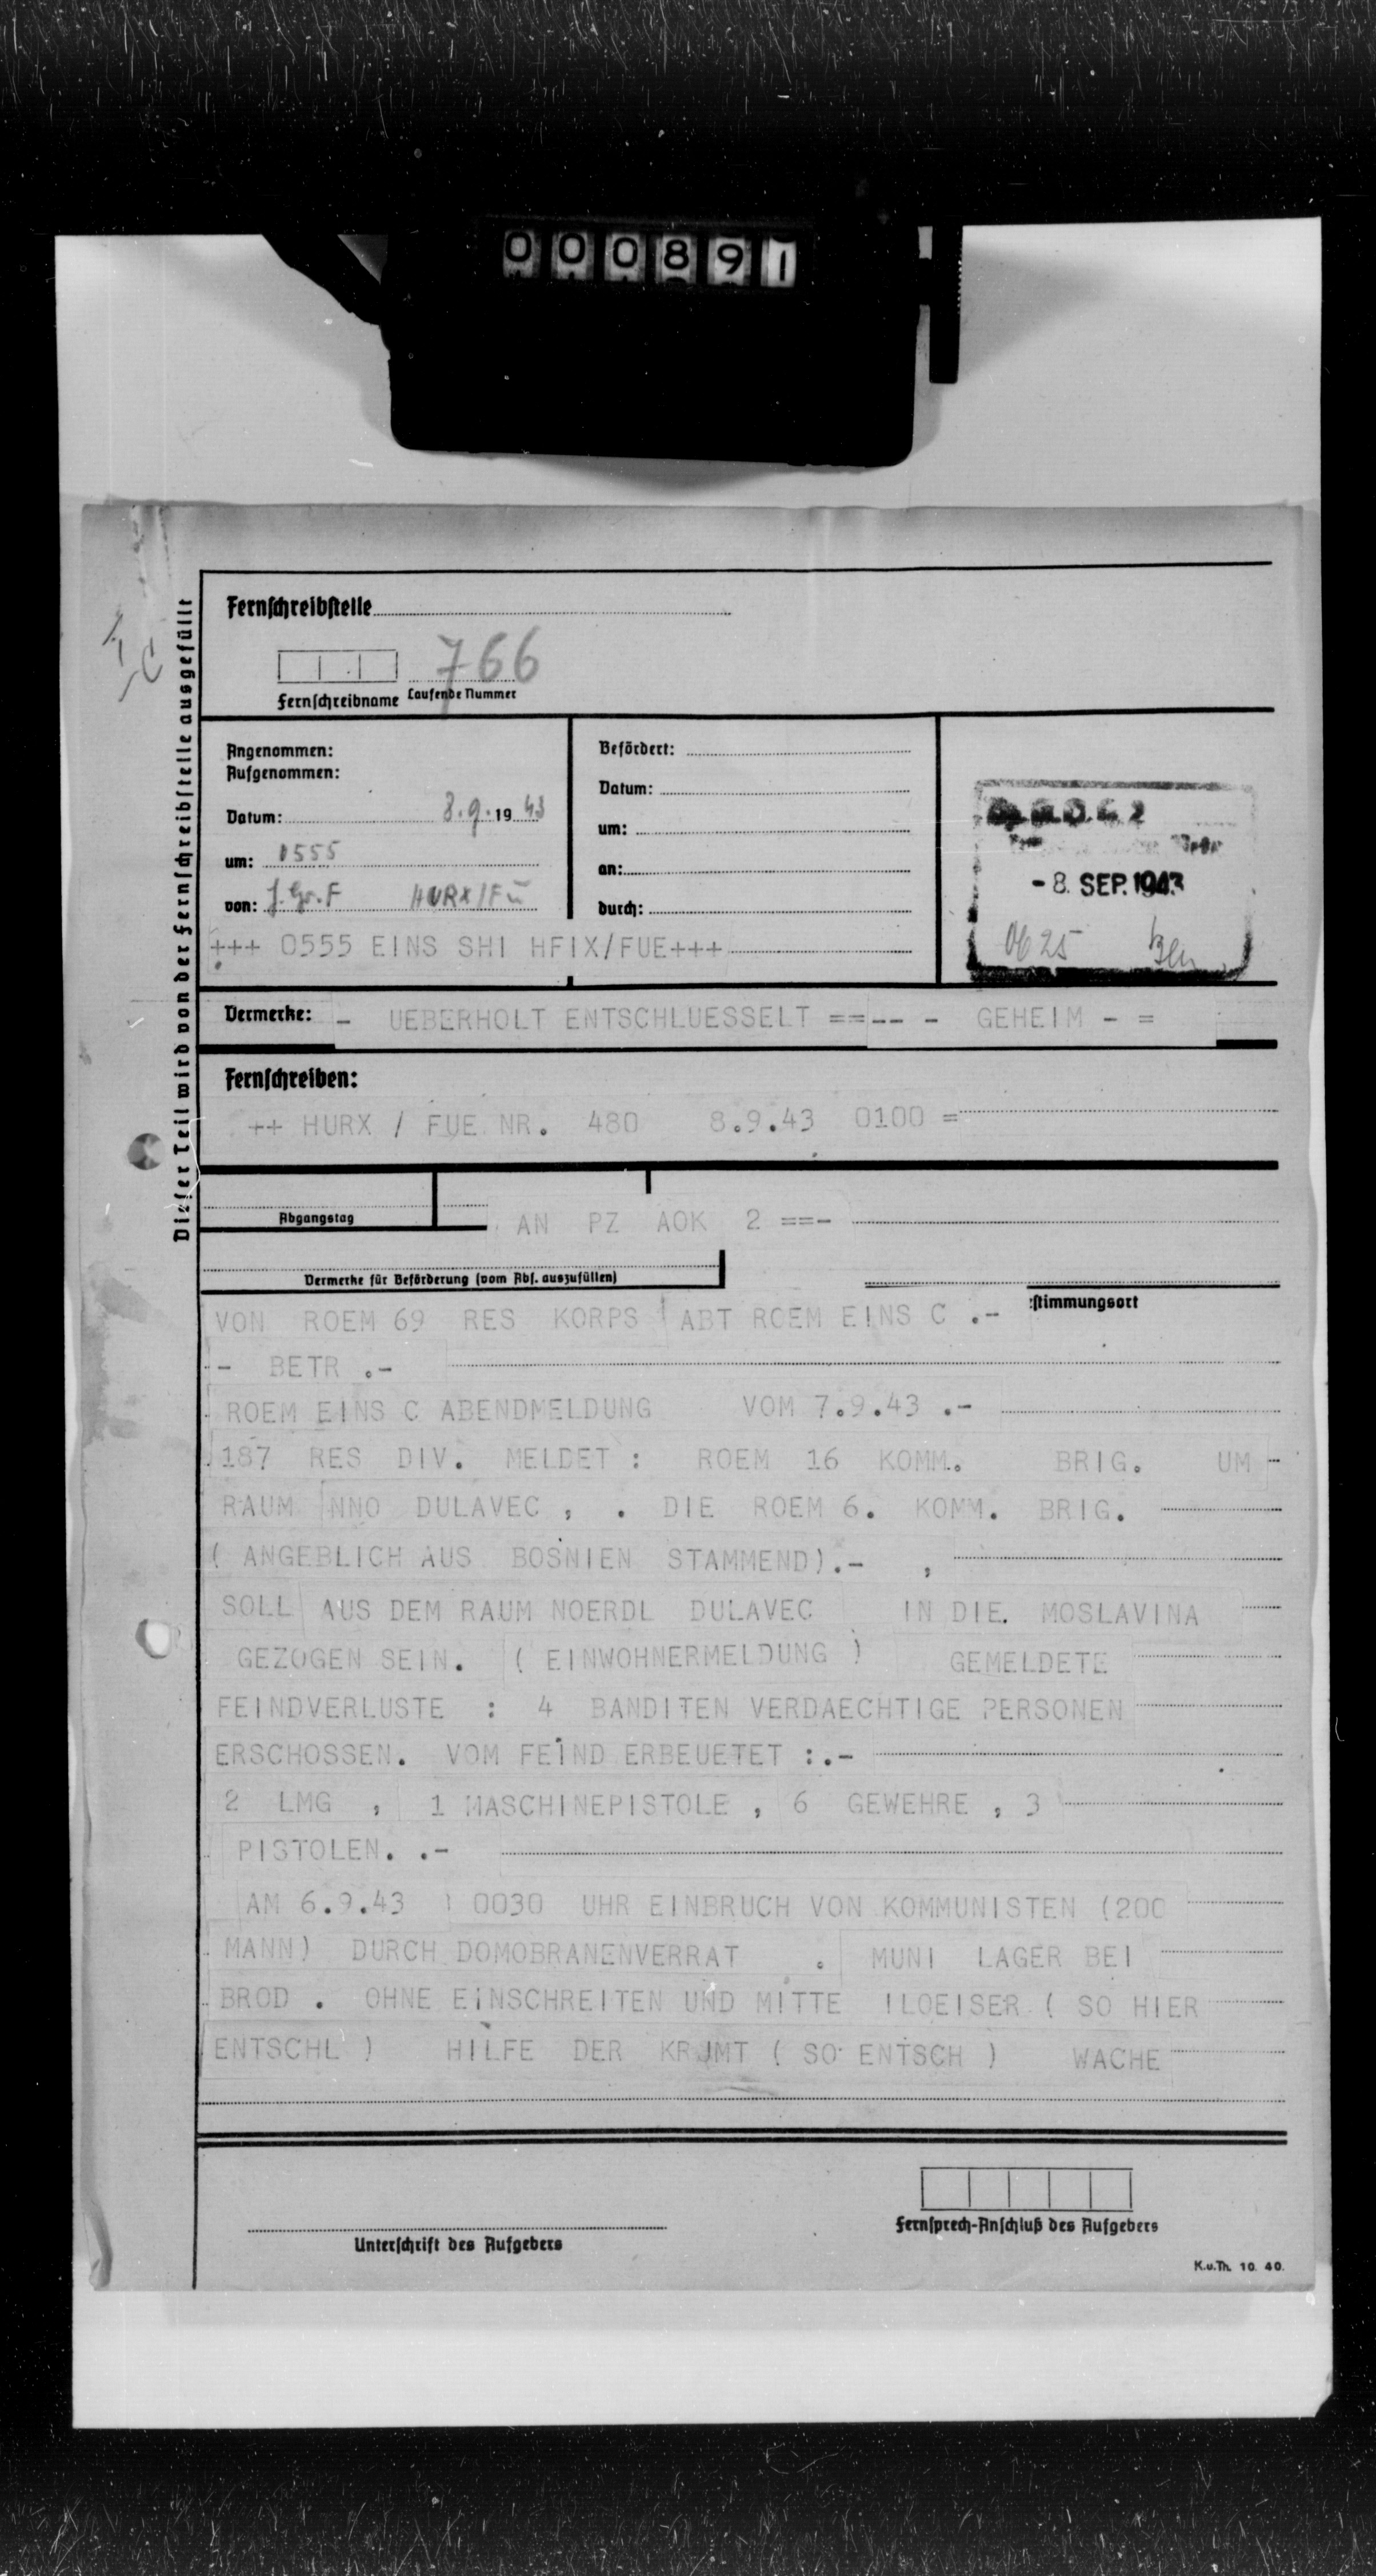 000891
Dieser Teil wird von der Fernschreibstelle ausgefüllt
Fernschreibstelle
766
Fernschreibname Laufende Nummer
Angenommen:
Aufgenommen:
Datum: 8.9.1943
um: 0555
von: HURX/Fü
Befördert:
Datum:
um:
an:
durch:
- 8. SEP. 1943
0625
+++ 0555 EINS SHI HFIX/FUE+++
Vermerke: - UEBERHOLT ENTSCHLUESSELT ==-- - GEHEIM - =
Fernschreiben:
++ HURX / FUE NR. 480 8.9.43 0100 =
Abgangstag
AN PZ AOK 2 ==-
Vermerke für Beförderung (vom Abs. auszufüllen)
stimmungsort
VON ROEM 69 RES KORPS ABT ROEM EINS C .-
- BETR .-
ROEM EINS C ABENDMELDUNG VOM 7.9.43 .-
187 RES DIV. MELDET : ROEM 16 KOMM. BRIG. UM -
RAUM NNO DULAVEC , . DIE ROEM 6. KOMM. BRIG.
( ANGEBLICH AUS BOSNIEN STAMMEND).- ,
SOLL AUS DEM RAUM NOERDL DULAVEC IN DIE. MOSLAVINA
GEZOGEN SEIN. ( EINWOHNERMELDUNG ) GEMELDETE
FEINDVERLUSTE : 4 BANDITEN VERDAECHTIGE PERSONEN
ERSCHOSSEN. VOM FEIND ERBEUETET :.-
2 LMG , 1 MASCHINEPISTOLE , 6 GEWEHRE , 3
PISTOLEN. .-
AM 6.9.43 0030 UHR EINBRUCH VON KOMMUNISTEN (200
MANN) DURCH DOMOBRANENVERRAT . MUNI LAGER BEI
BROD . OHNE EINSCHREITEN UND MITTE ILOEISER ( SO HIER
ENTSCHL ) HILFE DER KRJMT ( SO ENTSCH ) WACHE
Unterschrift des Aufgebers
Fernsprech-Anschluß des Aufgebers
K.u.Th. 10. 40.